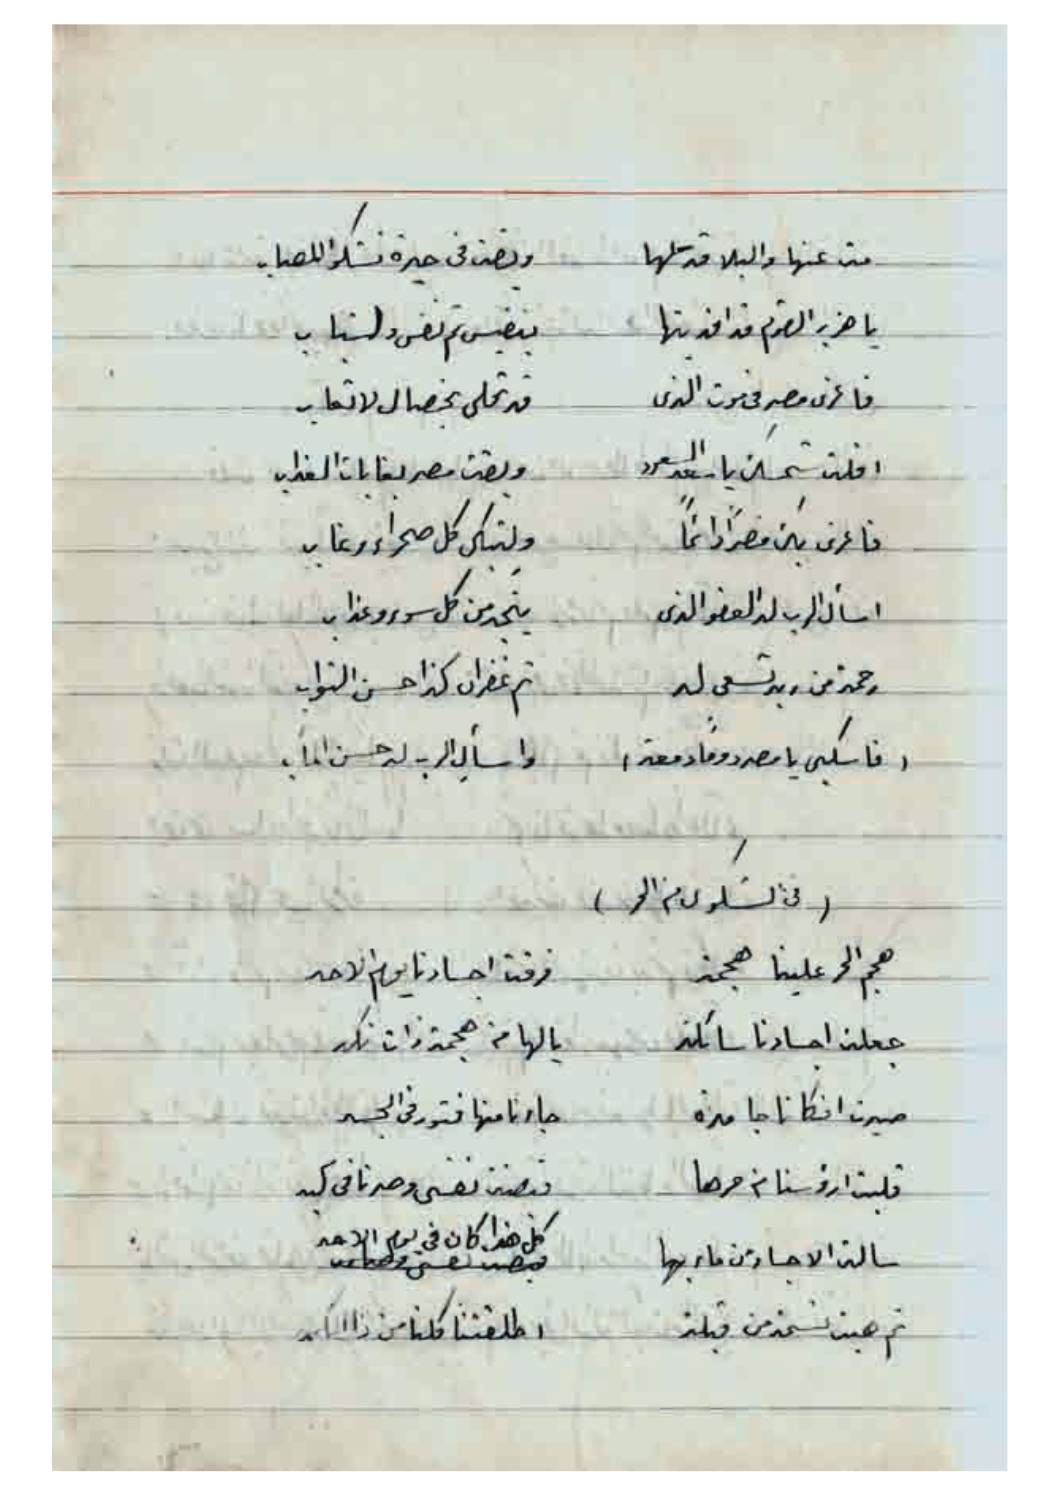 مت عنها والبلا قد تلها وبقت فى حيرة تشكو المصاب
يا هزبر القوم قد افديتها بنفيس ثم نفس ولباب
فاعزى مصر فى موت الذى قد تحلى بخصال لا تعاب
افلت شمسك يا سعد السعود وبقت مصر بغابات العذاب
فاعزى دائماً ولتبكى كل صحراء وغاب
اسأل الرب له العفو الذى ينجه من كل سوء وعذاب
رحمة من ربه تسعى له ثم غفران كذا حسن الثواب
(فاسكبى يا مصر دوماً دمعة) واسألى الرب له حسن المآب
(فى الشكوى من الحر)
هجم الحر علينا هجمة فرقت اجسادنا يوم الاحد
جعلت اجسادنا ساكنة يالها من هجمة ذات نكد
صيرت افكانا جامدة جاءنا منها فتور فى الجسد
قلبت ارؤسنا من حرها فبقت نفسى وحدنا فى كبد
سالت الاجساد من ماء بها كل هذا كان فى يوم الاحد
ثم هبت نسمة من قبلة اطلقتنا كلنا من ذا الكمد